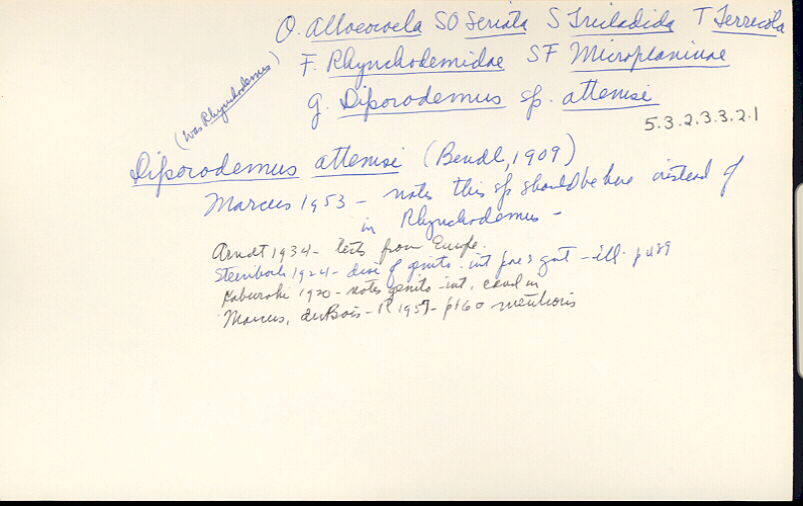 O. Alloeocoela SO Seriata S Tricladida T Terricola
F. Rhynchodemidae SF Microplaninae
g. Diporodemus sp. attemsi
5.3.2.3.3.2.1
(was Rhynchodemus)
Diporodemus attemsi (Bendl, 1909)
Marcus 1953 - notes this sp should be here instead of
in Rhynchodemus -
Arndt 1934 - lists from Europe.
Steinboch 1924 - disc of genito-int - ill. p 489
Kaburaki 1920 - notes genito-int.
Marcus, du Bois-R 1957 - p160 mentions